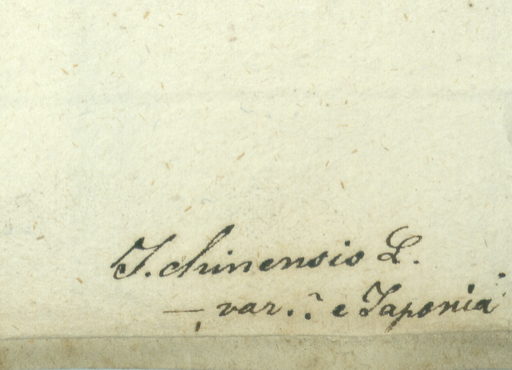 J. chinensis L.
—, var. ? e Japonia